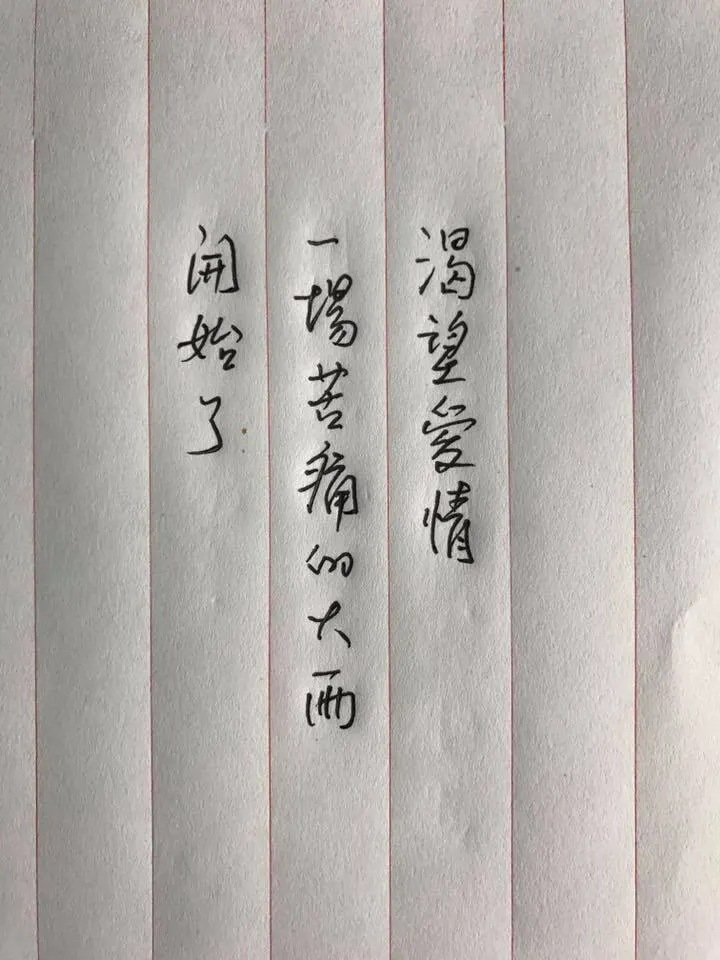 渴望爱情
一場苦痛的大雨
開始了